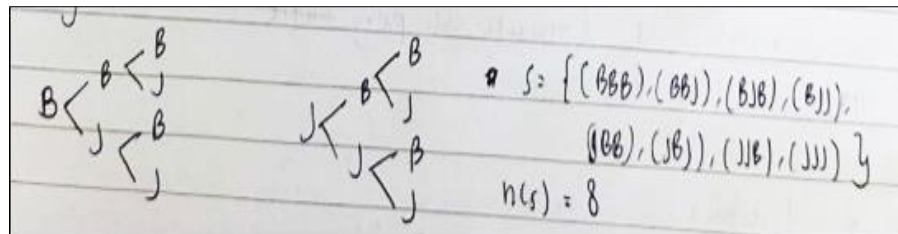 B
B
B
J
J
B
J
J
B
B
J
J
B
J
S = { (BBB), (BBJ), (BJB), (BJJ),
(JBB), (JBJ), (JJB), (JJJ) }
n(s) = 8